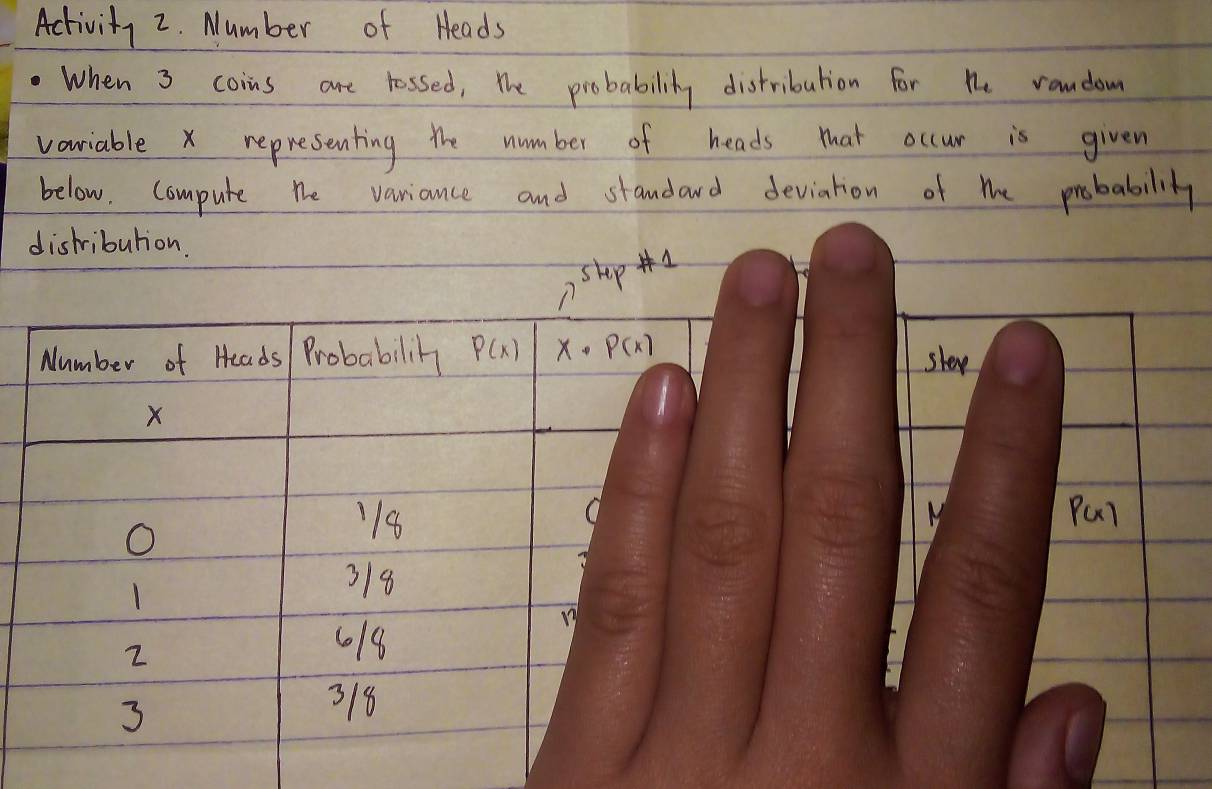 Activity 2. Number of Heads
• When 3 coins are tossed, the probability distribution for the random
variable X representing the number of heads that occur is given
below. Compute the variance and standard deviation of the probability
distribution.
step #1
Number of Heads X Probability P(x) X • P(x) step
0 1/8 P(x)
1 3/8
2 6/8
3 3/8